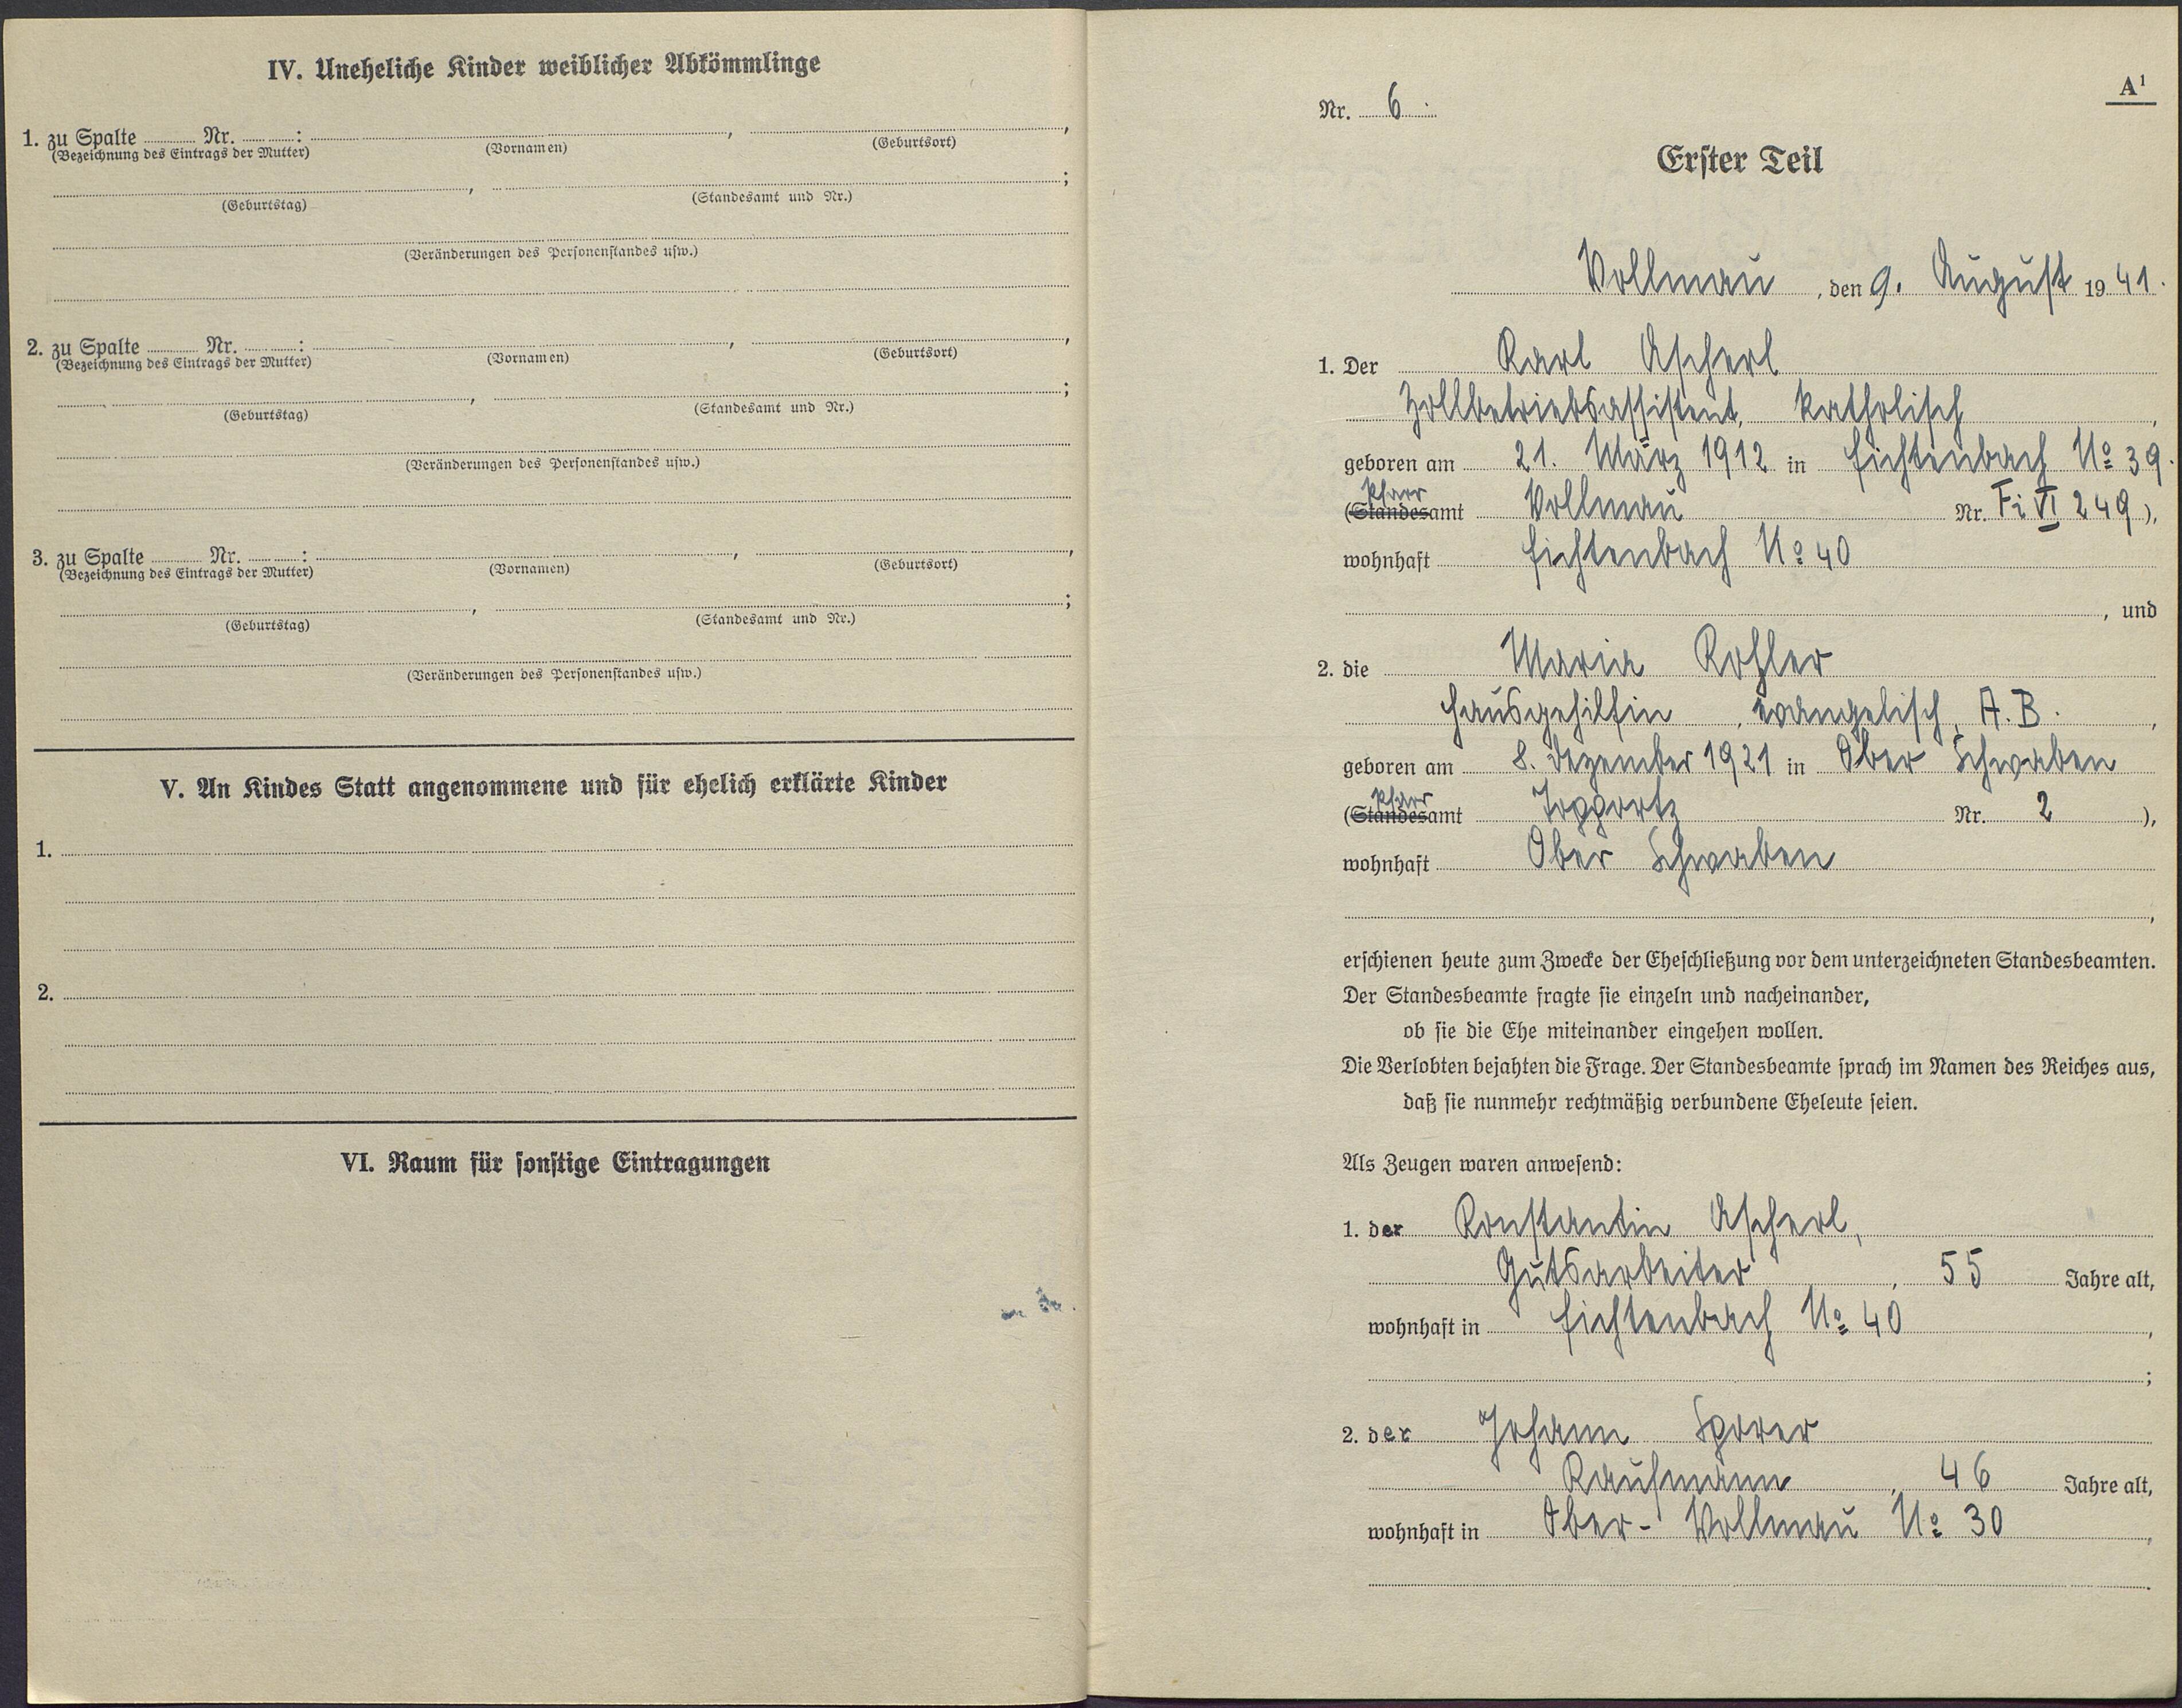 IV. Uneheliche Kinder weiblicher Abkömmlinge
1. zu Spalte ........ Nr. ........:
(Bezeichnung des Eintrags der Mutter) (Vornamen) (Geburtsort)
(Geburtstag) (Standesamt und Nr.)
(Veränderungen des Personenstandes usw.)
2. zu Spalte ........ Nr. ........:
(Bezeichnung des Eintrags der Mutter) (Vornamen) (Geburtsort)
(Geburtstag) (Standesamt und Nr.)
(Veränderungen des Personenstandes usw.)
3. zu Spalte ........ Nr. ........:
(Bezeichnung des Eintrags der Mutter) (Vornamen) (Geburtsort)
(Geburtstag) (Standesamt und Nr.)
(Veränderungen des Personenstandes usw.)
V. An Kindes Statt angenommene und für ehelich erklärte Kinder
1.
2.
VI. Raum für sonstige Eintragungen
A¹
Nr. 6
Erster Teil
Vollmau, den 9. August 1941.
1. Der Karl Ascherl
Zollbetriebsassistent, katholisch,
geboren am 21. März 1912 in Fichtenbach No 39.
Pfarr
(Standesamt Vollmau Nr. Fi VI 249),
wohnhaft Fichtenbach No 40
, und
2. die Maria Kohler
Hausgehilfin, evangelisch, A.B.,
geboren am 8. Dezember 1921 in Ober Schwaben
Pfarr
(Standesamt Topportz Nr. 2),
wohnhaft Ober Schwaben
,
erschienen heute zum Zwecke der Eheschließung vor dem unterzeichneten Standesbeamten.
Der Standesbeamte fragte sie einzeln und nacheinander,
ob sie die Ehe miteinander eingehen wollen.
Die Verlobten bejahten die Frage. Der Standesbeamte sprach im Namen des Reiches aus,
daß sie nunmehr rechtmäßig verbundene Eheleute seien.
Als Zeugen waren anwesend:
1. der Konstantin Ascherl,
Gutsarbeiter, 55 Jahre alt,
wohnhaft in Fichtenbach No 40,
;
2. der Johann Sporer
Kaufmann, 46 Jahre alt,
wohnhaft in Ober-Vollmau No 30,
.